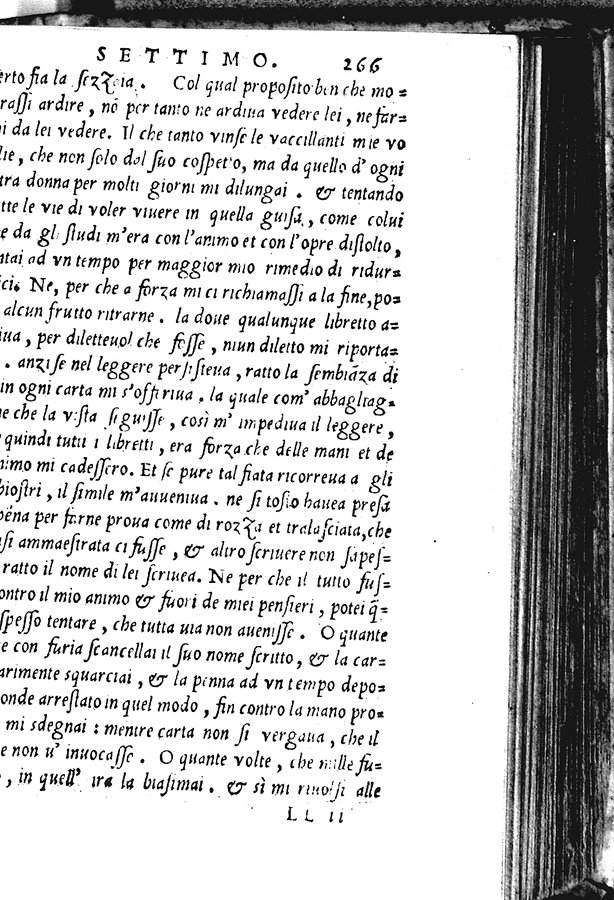 SETTIMO. 266
erto fia la sezzaia. Col qual proposito ben che mo=
rassi ardire, nō per tanto ne ardiua vedere lei, ne far=
i da lei vedere. Il che tanto vinse le vaccillanti mie vo
lie, che non solo dal suo cospetto, ma da quello d'ogni
tra donna per molti giorni mi dilungai. & tentando
tte le vie di voler viuere in quella guisa, come colui
e da gli studi m'era con l'animo et con l'opre distolto,
ntai ad vn tempo per maggior mio rimedio di ridur=
ici. Ne, per che a forza mi ci richiamassi a la fine, po=
alcun frutto ritrarne. la doue qualunque libretto a=
iua, per diletteuol che fosse, niun diletto mi riporta=
. anzi se nel leggere persisteua, ratto la sembiāza di
in ogni carta mi s'offeriua. la quale com' abbagliag=
e che la vista seguisse, così m' impediua il leggere,
quindi tutti i libretti, era forza che delle mani et de
nimo mi cadessero. Et se pure tal fiata ricorreua a gli
hiostri, il simile m'auueniua. ne si tosto hauea presa
pēna per farne proua come di rozza et tralasciata, che
si ammaestrata ci fusse, & altro scriuere non sapes=
ratto il nome di lei scriuea. Ne per che il tutto fus=
ontro il mio animo & fuori de miei pensieri, potei q̄=
spesso tentare, che tutta uia non auenisse. O quante
e con furia scancellai il suo nome scritto, & la car=
arimente squarciai, & la penna ad vn tempo depo=
onde arrestato in quel modo, fin contro la mano pro=
mi sdegnai: mentre carta non si vergaua, che il
e non u' inuocasse. O quante volte, che mille fu=
, in quell' ira la biasimai. & sì mi riuolsi alle
LL ii